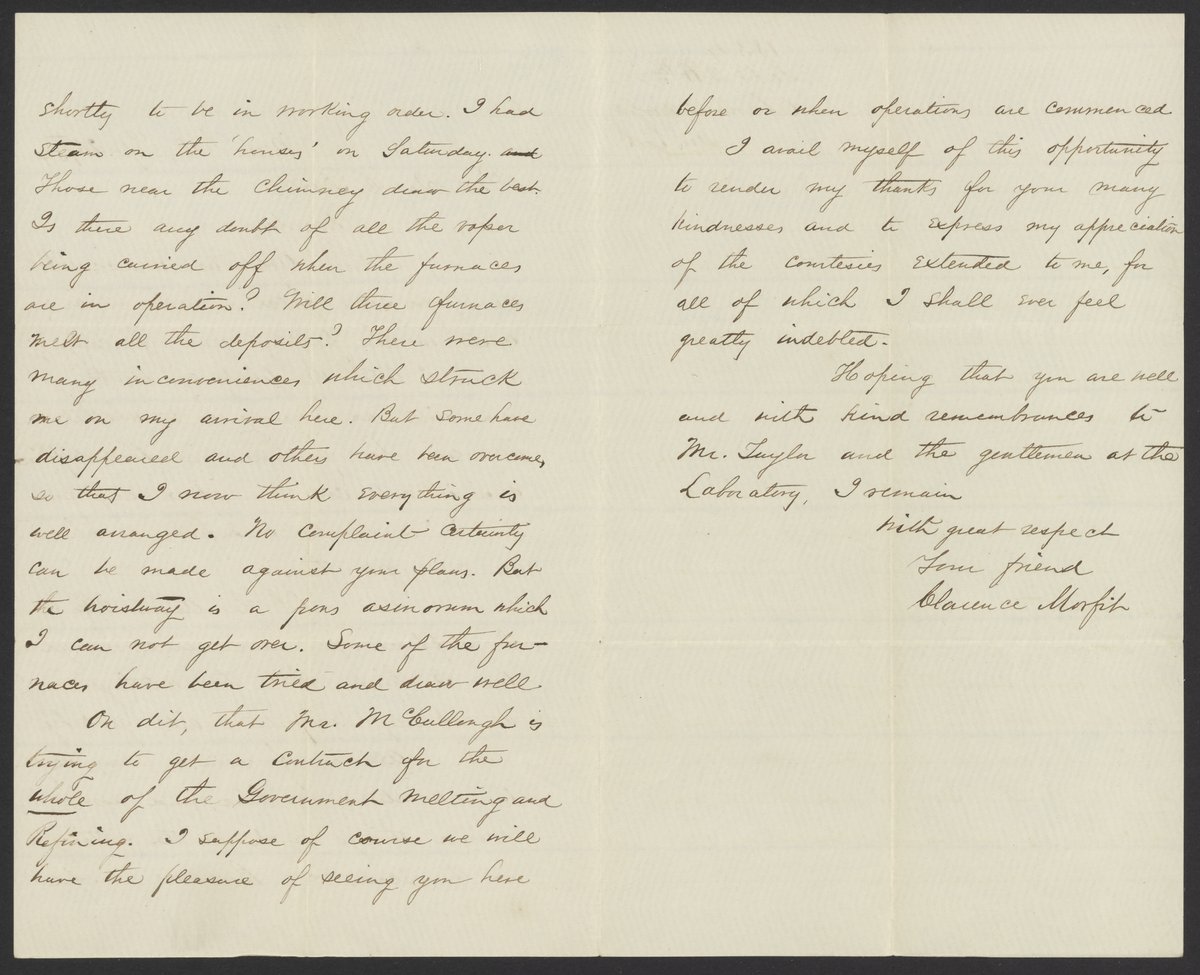 shortly to be in working order. I had
steam on the 'houses' on Saturday. and
Those near the Chimney draw the best.
Is there any doubt of all the vapor
being carried off when the furnaces
are in operation? Will three furnaces
melt all the deposits? There were
many inconveniences which struck
me on my arrival here. But some have
disappeared and others have been overcome,
so that I now think everything is
well arranged. No complaint certainly
can be made against your plans. But
the hoistway is a pons asinorum which
I can not get over. Some of the fur-
naces have been tried and draw well
On dit, that Mr. McCullough is
trying to get a contract for the
whole of the Government melting and
Refining. I suppose of course we will
have the pleasure of seeing you here
before or when operations are commenced
I avail myself of this opportunity
to render my thanks for your many
kindnesses and to express my appreciation
of the courtesies extended to me, for
all of which I shall ever feel
greatly indebted.
Hoping that you are well
and with kind remembrances to
Mr. Taylor and the gentlemen at the
Laboratory, I remain
With great respect
Your friend
Clarence Morfit